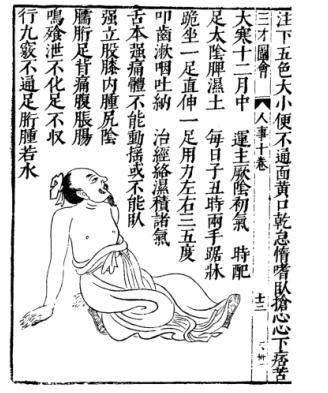 注下五色大小便不通面黃口乾怠惰嗜臥搶心心下痞苦
三才圖會 人事十卷
大寒十二月中 運主厥陰初氣 時配
足太陰脾濕土 每日子丑時兩手踞牀
跪坐一足直伸一足用力左右三五度
叩齒漱咽吐納 治經絡濕積諸氣
舌本强痛體不能動搖或不能臥
强立股膝内腫尻陰
臑胻足背痛腹脹腸
鳴飱泄不化足不収
行九竅不通足胻腫若水